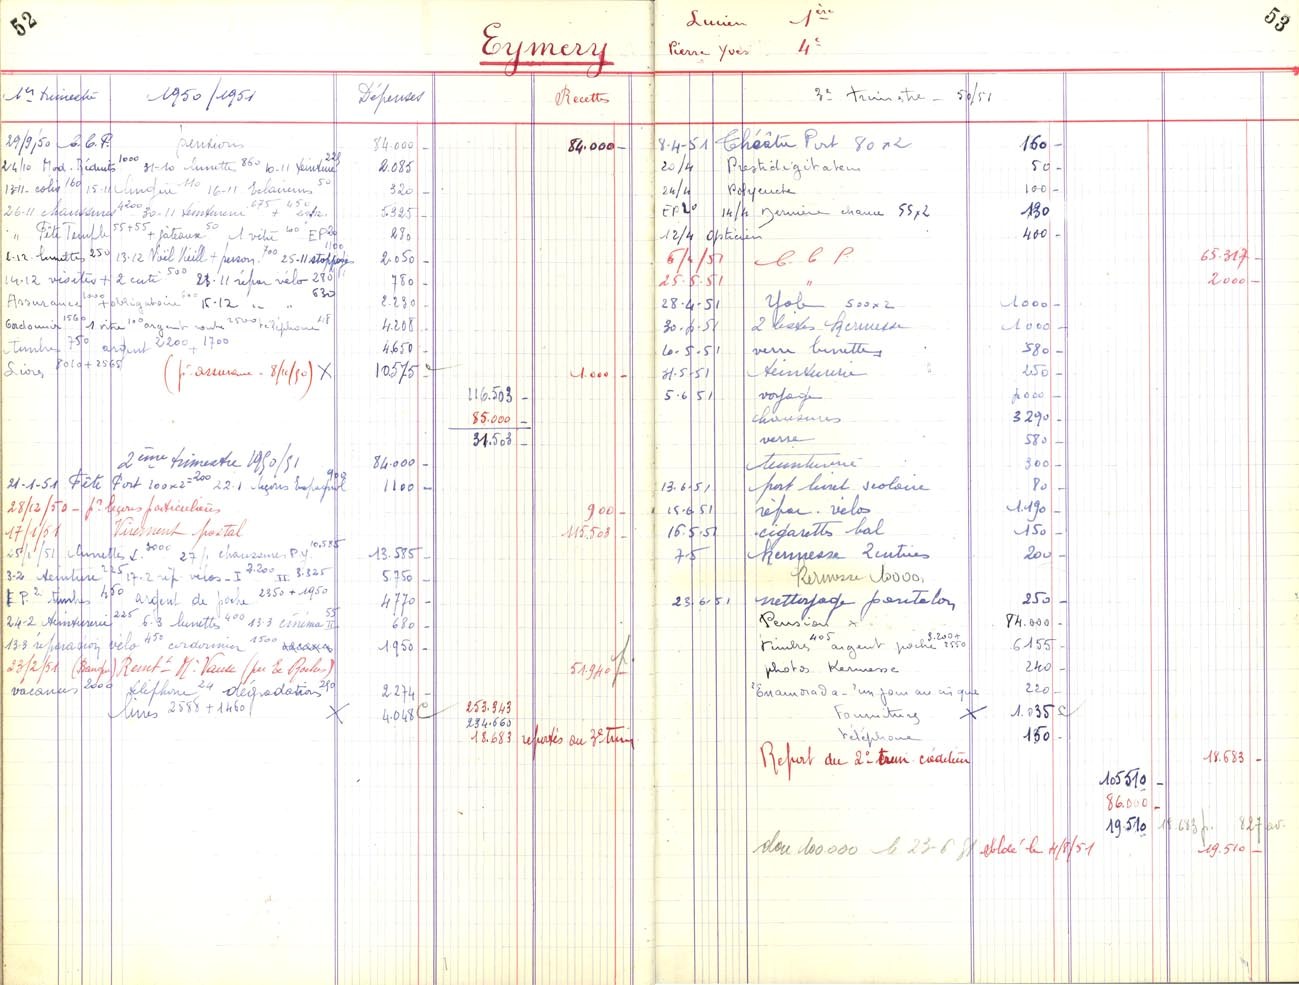 52
Eymery
1er trimestre 1950/1951 Dépenses Recettes
29/9/50 C.C.P. pensions 84.000 - 84.000 -
24/10 Mod. Réduits 1000 31-10 lunettes 860 10-11 teinture 225 2.085
13-11 colis 160 15-11 lingère 110 16-11 Eclaireurs 50 320 -
26-11 chaussures 4200 30-11 teinturerie 675 + 450 5325 -
" Fête Temple 55+55 + gâteaux 50 1 vitre 60 EP 280 -
2-12 lunettes 250 13-12 Noël Vieill + person. 700 25-11 stoppages 1100 2.050 -
14-12 visites + 2 cuti 500 23-11 répar vélo 280 780 -
Assurance 1000 + obligatoire 600 15-12 " " 630 2.230 -
Cordonnier 1560 1 vitre 100 argent route 2500 téléphone 48 4.208 -
timbres 750 argent 2200 + 1700 4.650 -
Livres 8010 + 2565 (pr assurance 8/11/50) X 10.575 - 1.000 -
116.503 -
85.000 -
31.503 -
2ème trimestre 1950/51 84.000 -
21-1-51 Fête Port 100x2=200 22.1 leçons Espagnol 900 1100 -
28/12/50 - pr leçons particulières 900 -
17/1/51 Virement postal 115.503 -
25/1/51 lunettes L. 3000 27/1 chaussures P.Y. 10.585 13.585 -
3-2 teinture 225 17-2 rép vélos - I 2.200 II 3.325 5.750 -
E.P. 2 timbres 450 argent de poche 2350 + 1950 4770 -
24-2 teinturerie 225 6-3 lunettes 400 13-3 cinéma 55 680 -
13-3 réparation vélo 450 cordonnier 1500 1950 -
23/2/51 (Banque) Remt Mr Vause (pr Ec Roches) 51.940 -
vacances 2000 téléphone 24 dégradations 250 2.274 -
livres 2588 + 1460 X 4.048 253.343
234.660
18.683 reportés au 3e trim
53
Lucien 1ère
Pierre Yves 4e
3e trimestre - 50/51
8-4-51 Théâtre Port 80 x 2 160 -
20/4 Prestidigitateur 50 -
24/4 Polyeucte 100 -
EP 14/4 Dernière chance 55x2 130 -
12/4 Opticien 400 -
6/4/51 C.C.P. 65.317 -
25-5-51 " 2000 -
28-4-51 Yole 500x2 1.000 -
30-4-51 2 listes Kermesse 1.000 -
10-5-51 verre lunettes 580 -
31-5-51 teinturerie 250 -
5-6-51 voyage
chaussures 3290 -
verre 580 -
teinturerie 300 -
13-6-51 port livret scolaire 80 -
15-6-51 répar. vélos 1.190 -
16-5-51 cigarettes bal 150 -
7-5 Kermesse 2 entrées 200 -
Kermesse 10000,
23-6-51 nettoyage pantalon 250 -
Pension x 84.000 -
timbres 405 argent poche 3.200 + 2550 6155 -
photos Kermesse 240 -
"Enamorada - 1 un jour au cirque 220 -
Fournitures X 1.035
téléphone 150 -
Report du 2e trim créditeur 18.683 -
105510 -
86.000 -
19.510 18.683 p. 827 av.
don 100.000 le 23-6-51 soldé le 4/8/51 19.510 -